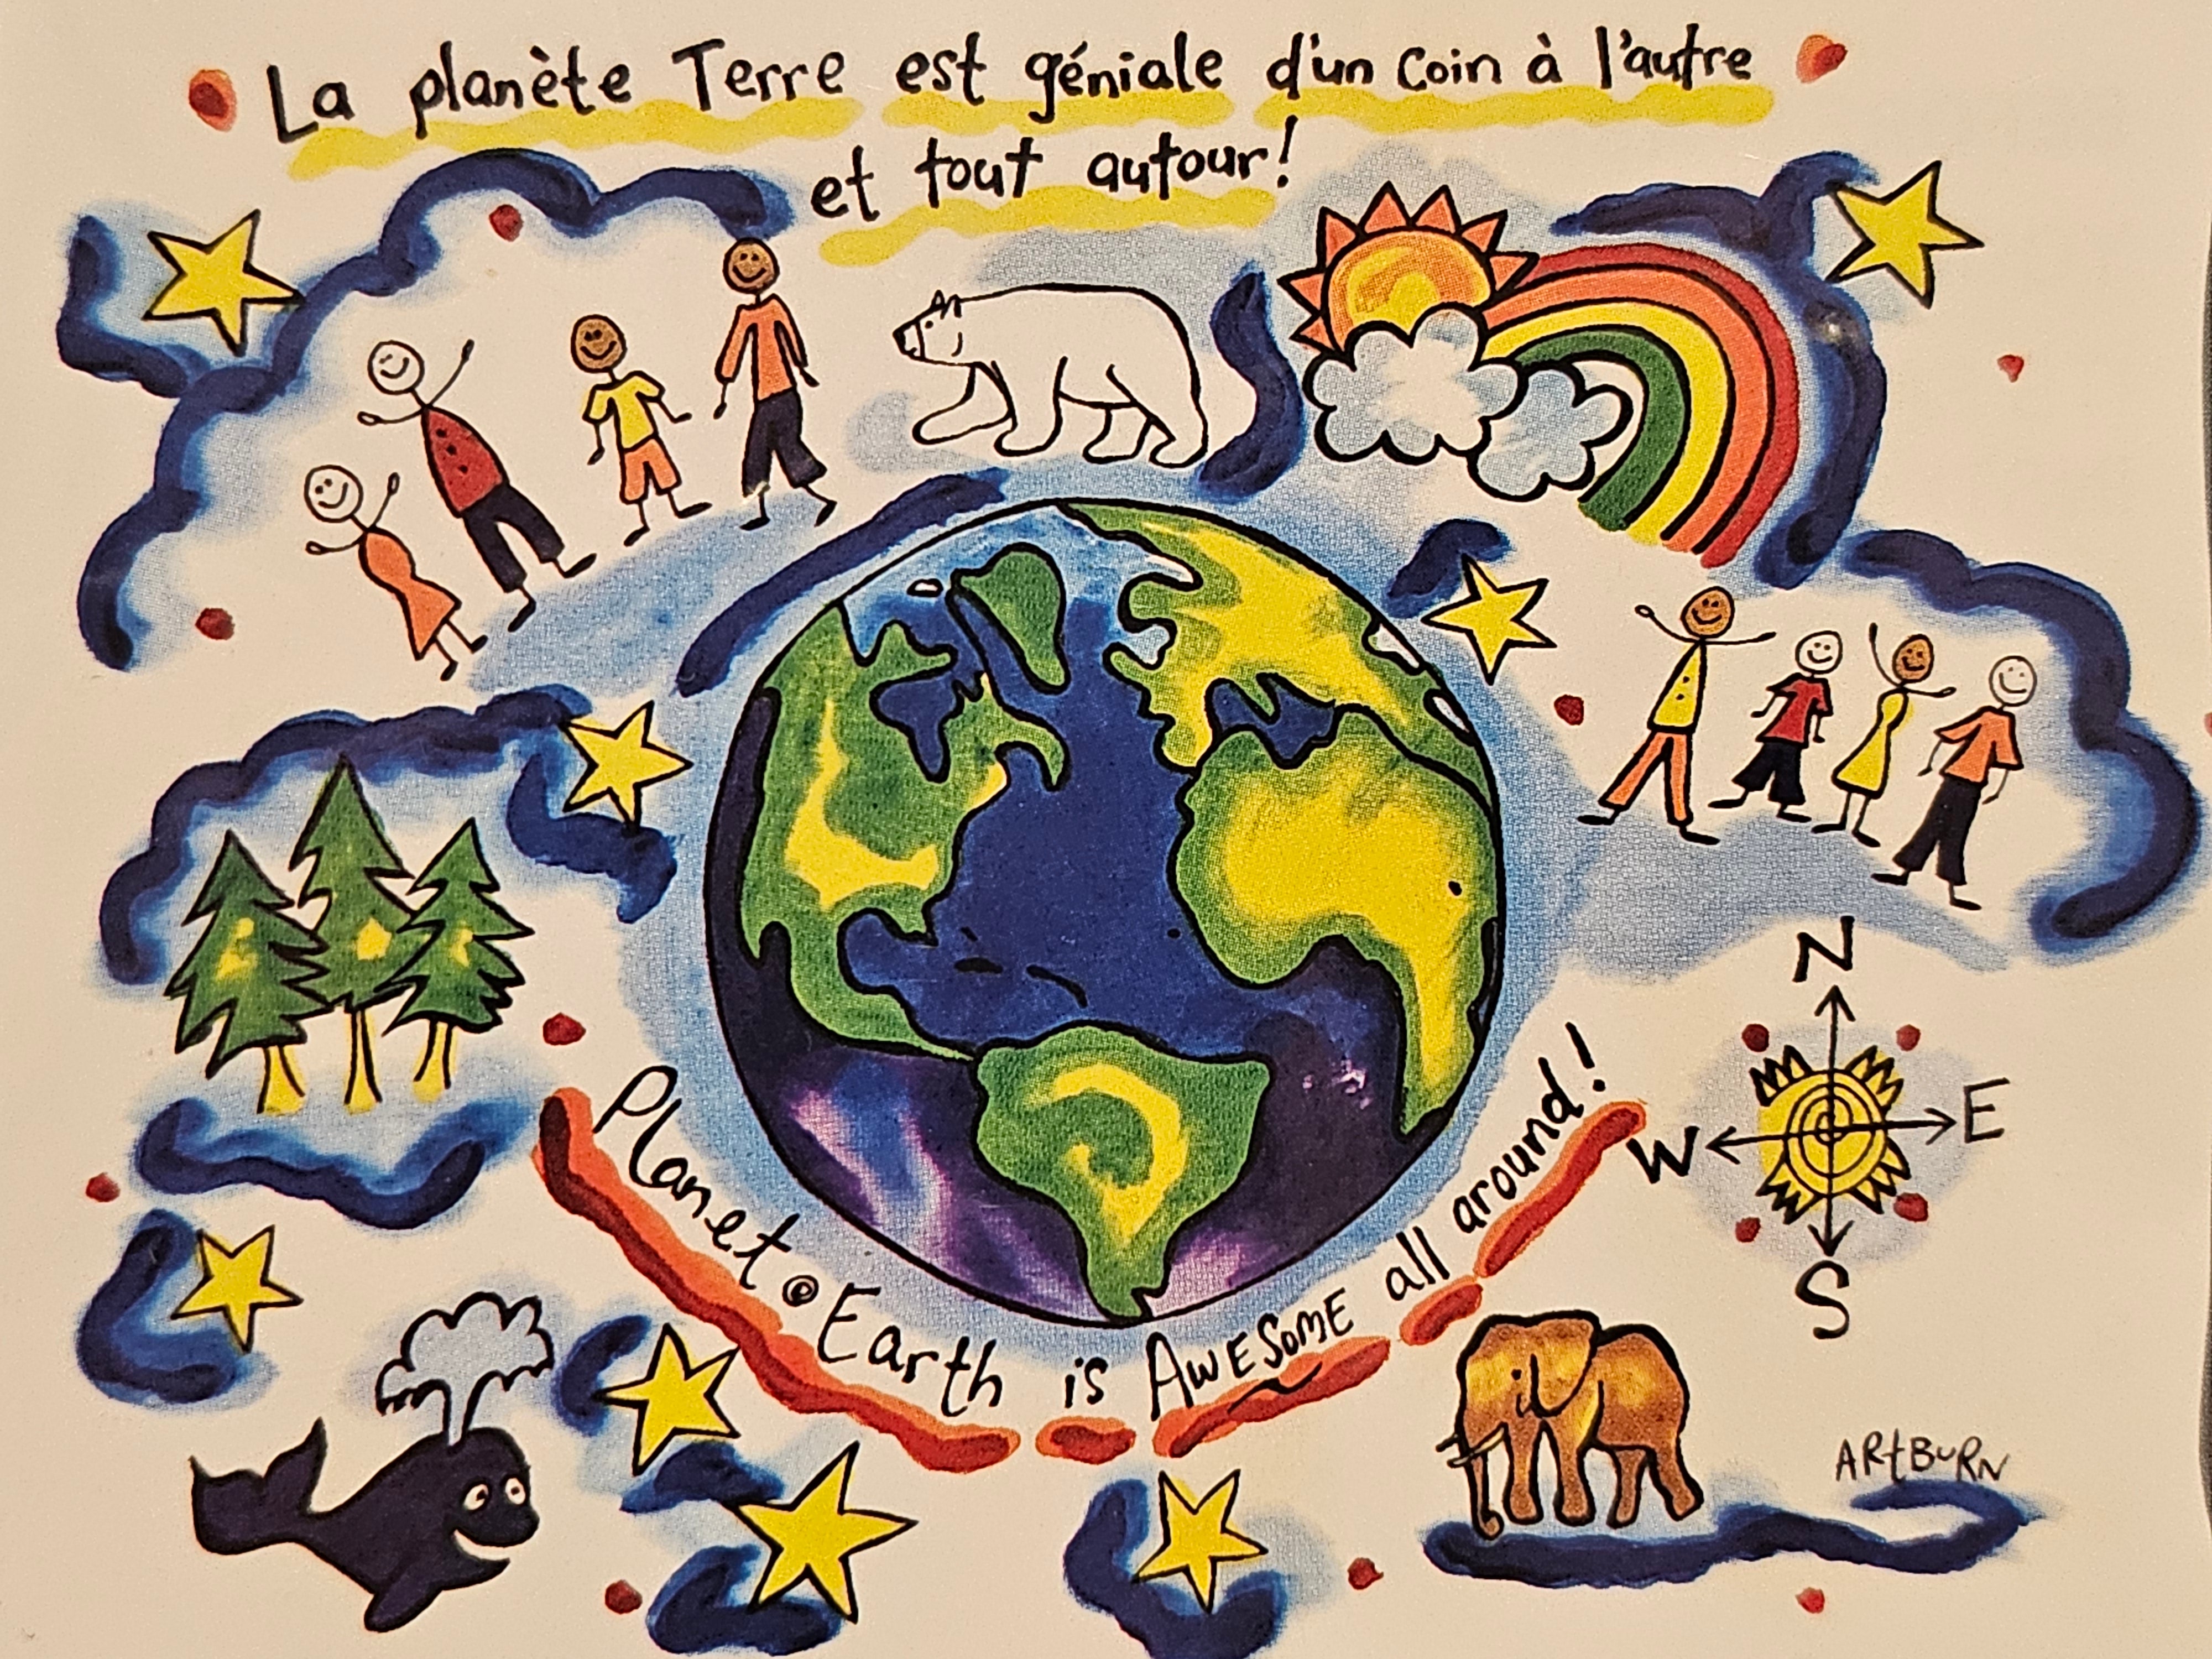 La planète Terre est géniale d'un coin à l'autre
et tout autour!
N
W E
S
Planet © Earth is AWESOME all around!
ARtBURN